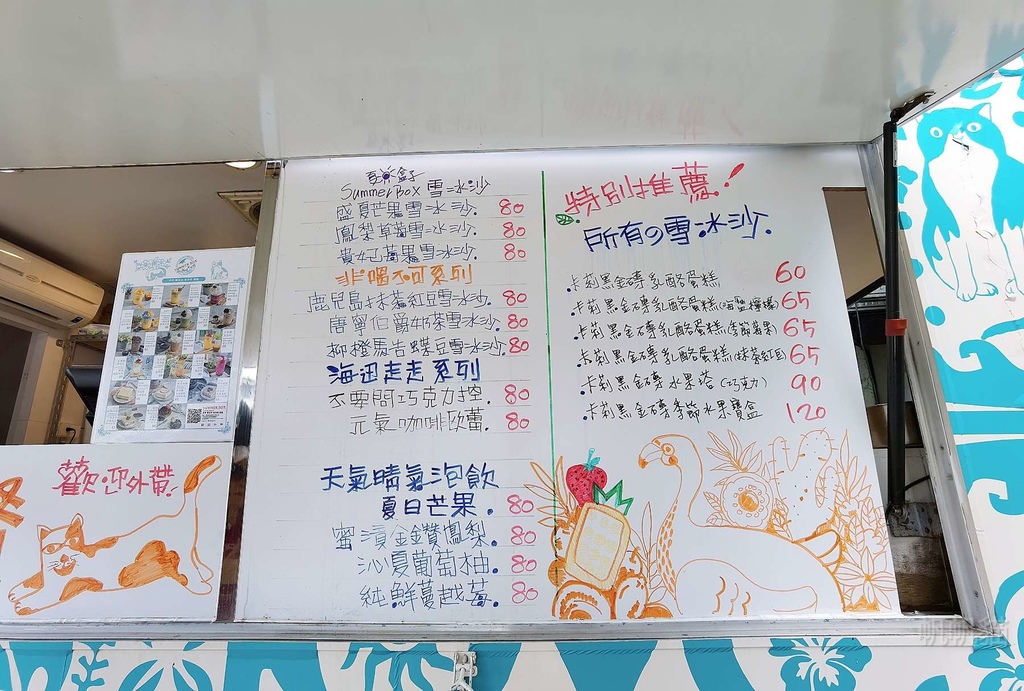 夏 盒子
Summer Box 雪冰沙
盛夏芒果雪冰沙. 80
鳳梨草莓雪冰沙. 80
貴妃蘋果雪冰沙 80
非喝不可系列
鹿兒島抹茶紅豆雪冰沙. 80
唐寧伯爵奶茶雪冰沙. 80
柳橙馬告蝶豆雪冰沙. 80
海邊走走系列
不要問巧克力控. 80
元氣咖啡歐蕾. 80
天氣晴氣泡飲
夏日芒果. 80
蜜漬金鑽鳳梨. 80
沁夏葡萄柚. 80
純鮮蔓越莓. 80
特別推薦!
所有の雪冰沙.
卡莉黑金磚乳酪蛋糕 60
卡莉黑金磚乳酪蛋糕(海鹽檸檬) 65
卡莉黑金磚乳酪蛋糕(季節蘋果) 65
卡莉黑金磚乳酪蛋糕(抹茶紅豆) 65
卡莉黑金磚水果塔(巧克力) 90
卡莉黑金磚季節水果寶盒 120
歡迎外帶